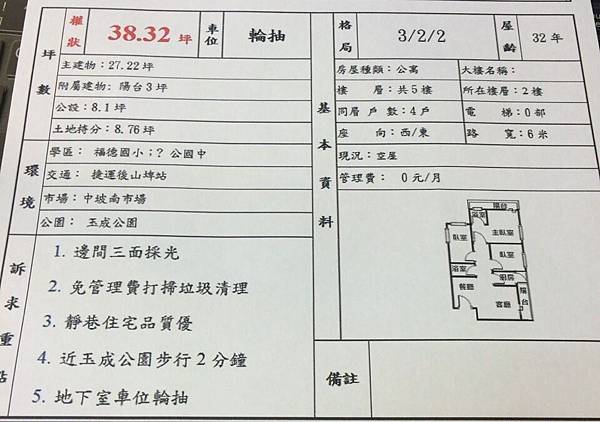 權狀 38.32 坪 車位 輪抽
坪數
主建物:27.22坪
附屬建物:陽台3坪
公設:8.1坪
土地持分:8.76坪
環境
學區: 福德國小;? 公國中
交通: 捷運後山埤站
市場:中坡南市場
公園: 玉成公園
訴求重點
1. 邊間三面採光
2. 免管理費打掃垃圾清理
3. 靜巷住宅品質優
4. 近玉成公園步行2分鐘
5. 地下室車位輪抽
格局 3/2/2 屋齡 32年
基本資料
房屋種類:公寓 大樓名稱:
樓 層:共5樓 所在樓層:2樓
同層戶數:4戶 電 梯:0部
座 向:西/東 路 寬:6米
現況:空屋
管理費: 0元/月
陽台
浴室
主臥室
臥室
臥室
浴室
廚房
餐廳
客廳
陽台
備註